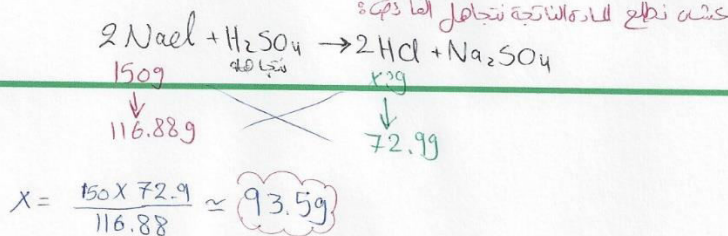 عشان نطلع المادة الناتجة نتجاهل الفائض:
2NaCl + H₂SO₄ → 2HCl + Na₂SO₄
نتجاهله
150g x?g
↓ ↓
116.88g 72.9g
X = 150 X 72.9 / 116.88 ≃ 93.5g